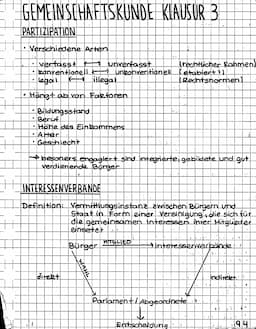 GEMEINSCHAFTSKUNDE KLAUSUR 3
PARTIZIPATION
• Verschiedene Arten
• verfasst ⟷ unverfasst (rechtlicher Rahmen)
• konventionell ⟷ unkonventionell (etabliert?)
• legal ⟷ illegal (Rechtsnormen)
• Hängt ab von Faktoren
• Bildungsstand
• Beruf
• Höhe des Einkommens
• Alter
• Geschlecht
→ besonders engagiert sind integrierte, gebildete und gut
verdienende Bürger
INTERESSENVERBÄNDE
Definition: Vermittlungsinstanz zwischen Bürgern und
Staat in Form einer Vereinigung, die sich für
die gemeinsamen Interessen ihrer Mitglieder
einsetzt
Bürger MITGLIED → Interessenverbände
direkt indirekt
Parlament / Abgeordnete
Entscheidung